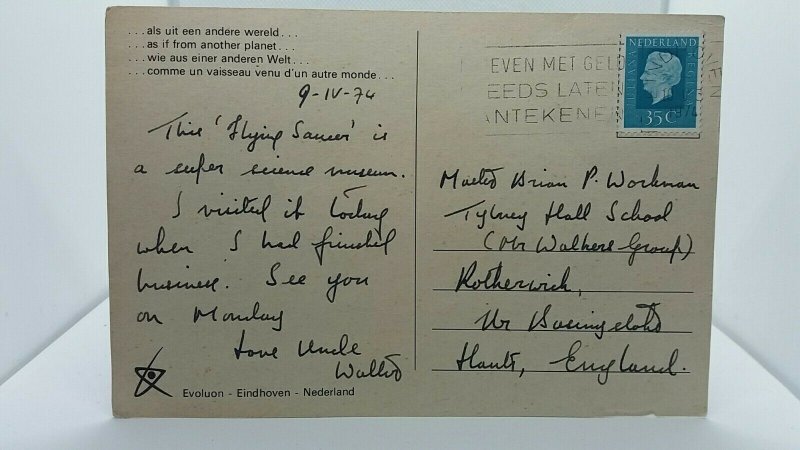 ...als uit een andere wereld...
...as if from another planet...
...wie aus einer anderen Welt...
...comme un vaisseau venu d'un autre monde...
9-IV-74
This 'Flying Saucer' is
a super science museum.
I visited it today
when I had finished
business. See you
on Monday
Love Uncle
Evoluon - Eindhoven - Nederland
EVEN MET GELD
EEDS LATEN
ANTEKENEN
NEDERLAND
JULIANA REGINA
35C
Brian P. Workman
Tylney Hall School
(Mr Walkers Group)
Rotherwick,
Nr Basingstoke
Hants, England.